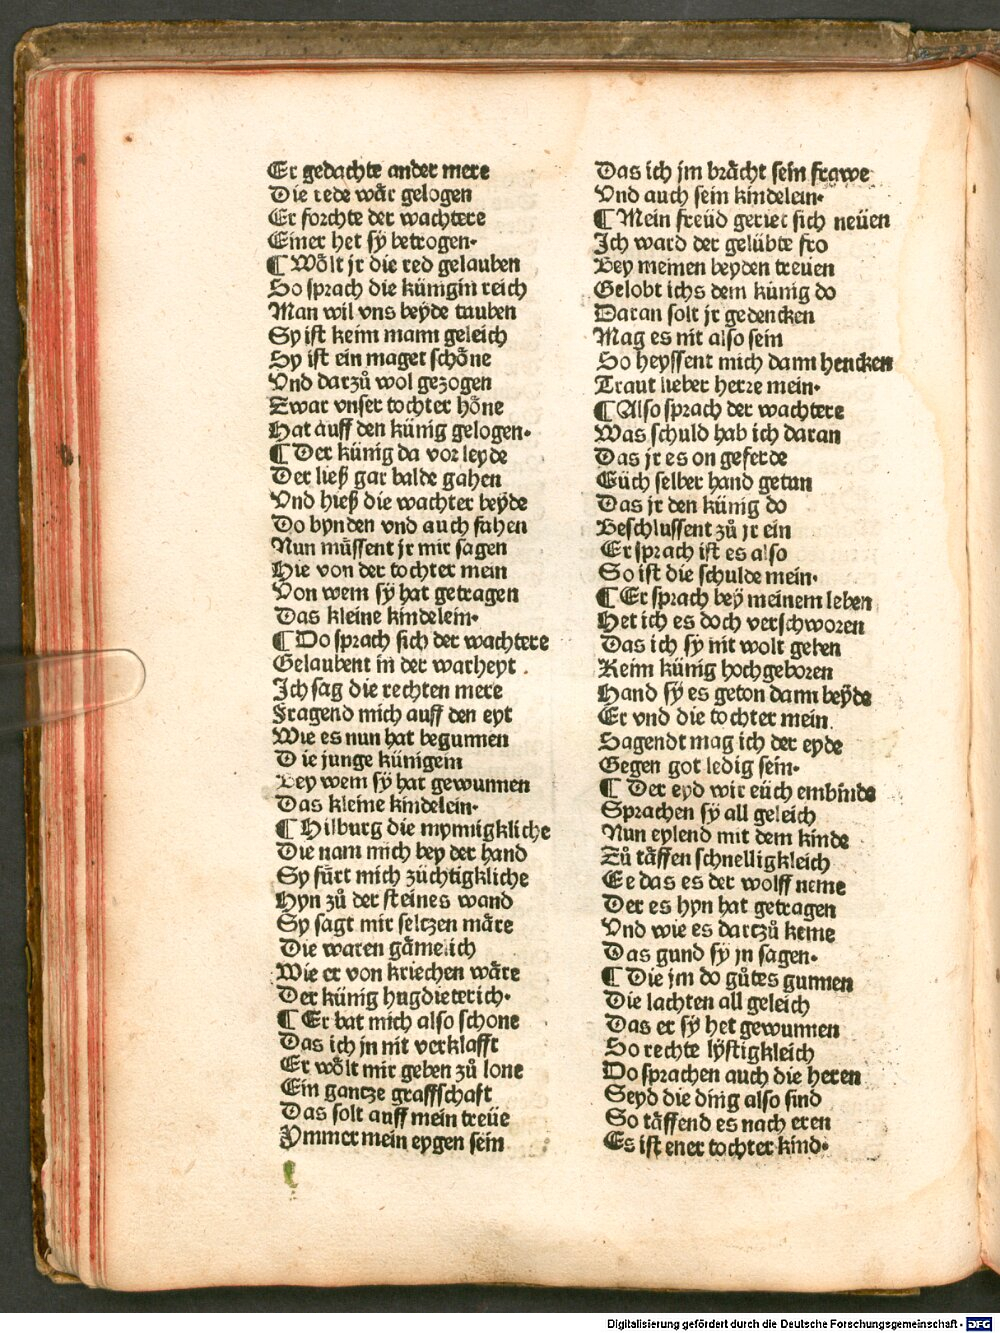 Er gedachte ander mere
Die rede wår gelogen
Er forchte der wachtere
Einer het sÿ betrogen·
¶ Wo̊lt jr die red gelauben
So sprach die künigin reich
Man wil vns beÿde tauben
Sy ist keim mann geleich
Sy ist ein maget scho̊ne
Vnd darzů wol gezogen
Zwar vnser tochter ho̊ne
Hat auff den künig gelogen·
¶ Der künig da vor leyde
Der ließ gar balde gahen
Vnd hieß die wachter beÿde
Do bynden vnd auch fahen
Nun müssent jr mir sagen
Hie von der tochter mein
Von wem sÿ hat getragen
Das kleine kindelein·
¶ Do sprach sich der wachtere
Gelaubent in der warheyt
Ich sag die rechten mere
Fragend mich auff den eyt
Wie es nun hat begunnen
Die junge künigein
Bey wem sÿ hat gewunnen
Das kleine kindelein·
¶ Hilburg die mynnigkliche
Die nam mich bey der hand
Sy fürt mich züchtigkliche
Hyn zů der steines wand
Sy sagt mir seltzen måre
Die waren gåmelich
Wie er von kriechen wåre
Der künig hugdieterich·
¶ Er bat mich also schone
Das ich jn nit verklafft
Er wo̊lt mir geben zů lone
Ein gantze graffschaft
Das solt auff mein treüe
Ymmer mein eygen sein
Das ich jm bråcht sein frawe
Vnd auch sein kindelein·
¶ Mein freüd geriet sich neüen
Ich ward der gelübte fro
Bey meinen beyden treuen
Gelobt ichs dem künig do
Daran solt jr gedencken
Mag es nit also sein
So heyssent mich dann hencken
Traut lieber herre mein·
¶ Also sprach der wachtere
Was schuld hab ich daran
Das jr es on geferde
Eüch selber hand getan
Das jr den künig do
Beschlussent zů jr ein
Er sprach ist es also
So ist die schulde mein·
¶ Er sprach beÿ meinem leben
Het ich es doch verschworen
Das ich sÿ nit wolt geben
Keim künig hochgeboren
Hand sÿ es geton dann beÿde
Er vnd die tochter mein
Sagendt mag ich der eyde
Gegen got ledig sein·
¶ Der eyd wir eüch embinde
Sprachen sÿ all geleich
Nun eylend mit dem kinde
Zů tåffen schnelligkleich
Ee das es der wolff neme
Der es hyn hat getragen
Vnd wie es dartzů keme
Das gund sÿ jn sagen·
¶ Die jm do gůtes gunnen
Die lachten all geleich
Das er sÿ het gewunnen
So rechte lÿstigkleich
Do sprachen auch die heren
Seyd die ding also sind
So tåffend es nach eren
Es ist ener tochter kind·
Digitalisierung gefördert durch die Deutsche Forschungsgemeinschaft - DFG